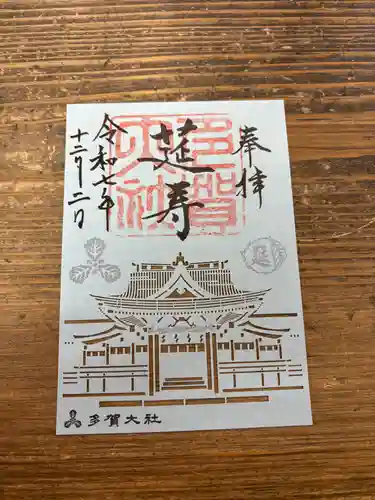 奉拝
延寿
多賀大社
令和七年
十二月二日
多賀大社